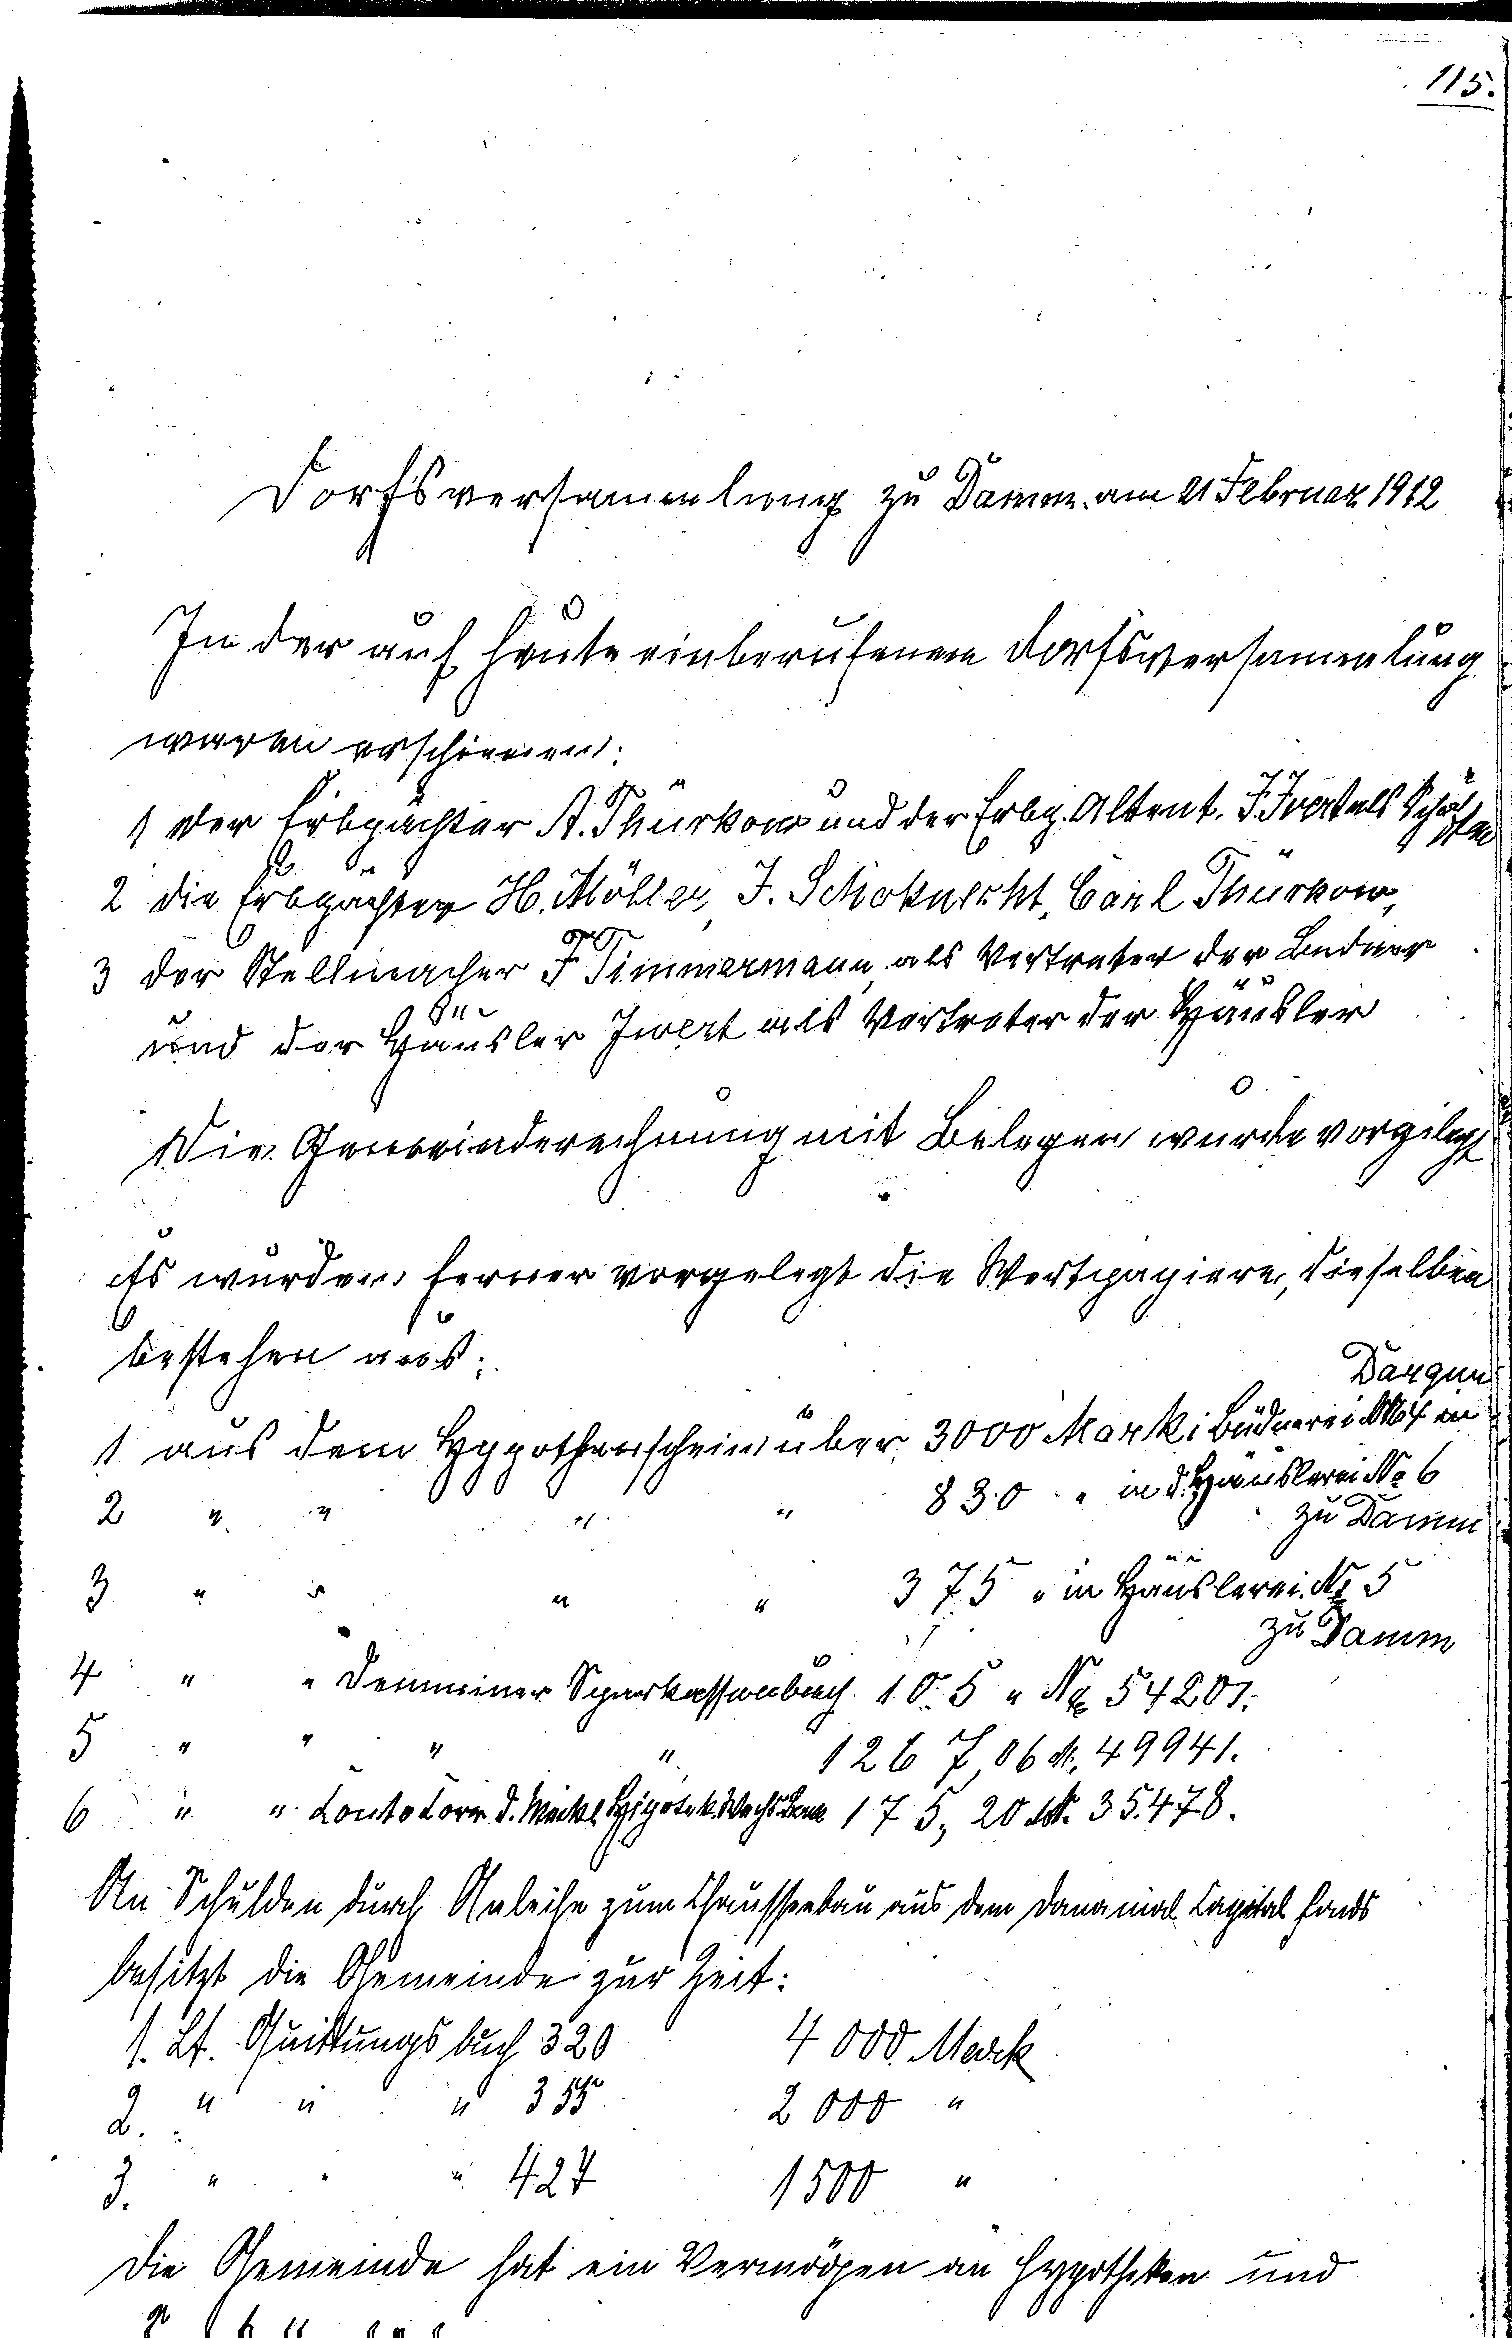 115.
Dorfsversammlung zu Damm. am 21 Februar 1912
In der auf heute einberufenen Dorfsversammlung
waren erschienen:
1 der Erbpächter A. Thürkow und der Erbp. Altent. F. Iwert als Schöffen
2 die Erbpächter H. Möller, J. Schoknecht, Carl Thürkow,
3 der Stellmacher F Timmermann als Vertreter der Büdner
und der Häusler Iwert als Vertreter der Häusler
Die Gemeinderechnung mit Belegen wurde vorgelegt
Es wurden ferner vorgelegt die Wertpapiere, dieselben
bestehen aus:
1 aus dem Hypothenschein über 3000 Mark i Büdnerei in Dargun
2 " " " " 830 " in d. Häuslerei No 6
zu Damm
3 " " " " 375 " in Häuslerei No 5
zu Damm
4 " " Demminer Sparkassenbuch 10.5 " No 54201.
5 " " " " 1267,06 M. 49941.
6 " " Conto Corr d. Meckl. Hypotek. Wechs. Bank 175, 20 M. 35.478.
An Schulden durch Anleihe zum Chausseebau aus dem Capital fonds
besitzt die Gemeinde zur Zeit:
1. Lt. Quittungsbuch 320 4000 Mark
2. " " " 355 2000 "
3. " " " 427 1500 "
Die Gemeinde hat ein Vermögen an Hypotheken und